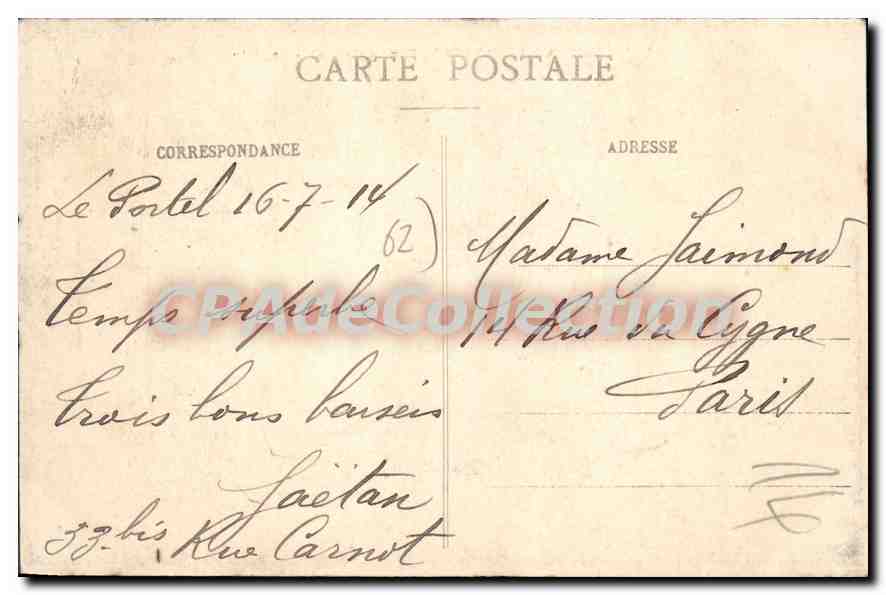 CARTE POSTALE
CORRESPONDANCE
Le Portel 16-7-14
62
Temps superbe
Trois bons baisers
Gaëtan
33 bis Rue Carnot
ADRESSE
Madame Jaimond
14 Rue du Cygne
Paris
CPAdeCollection